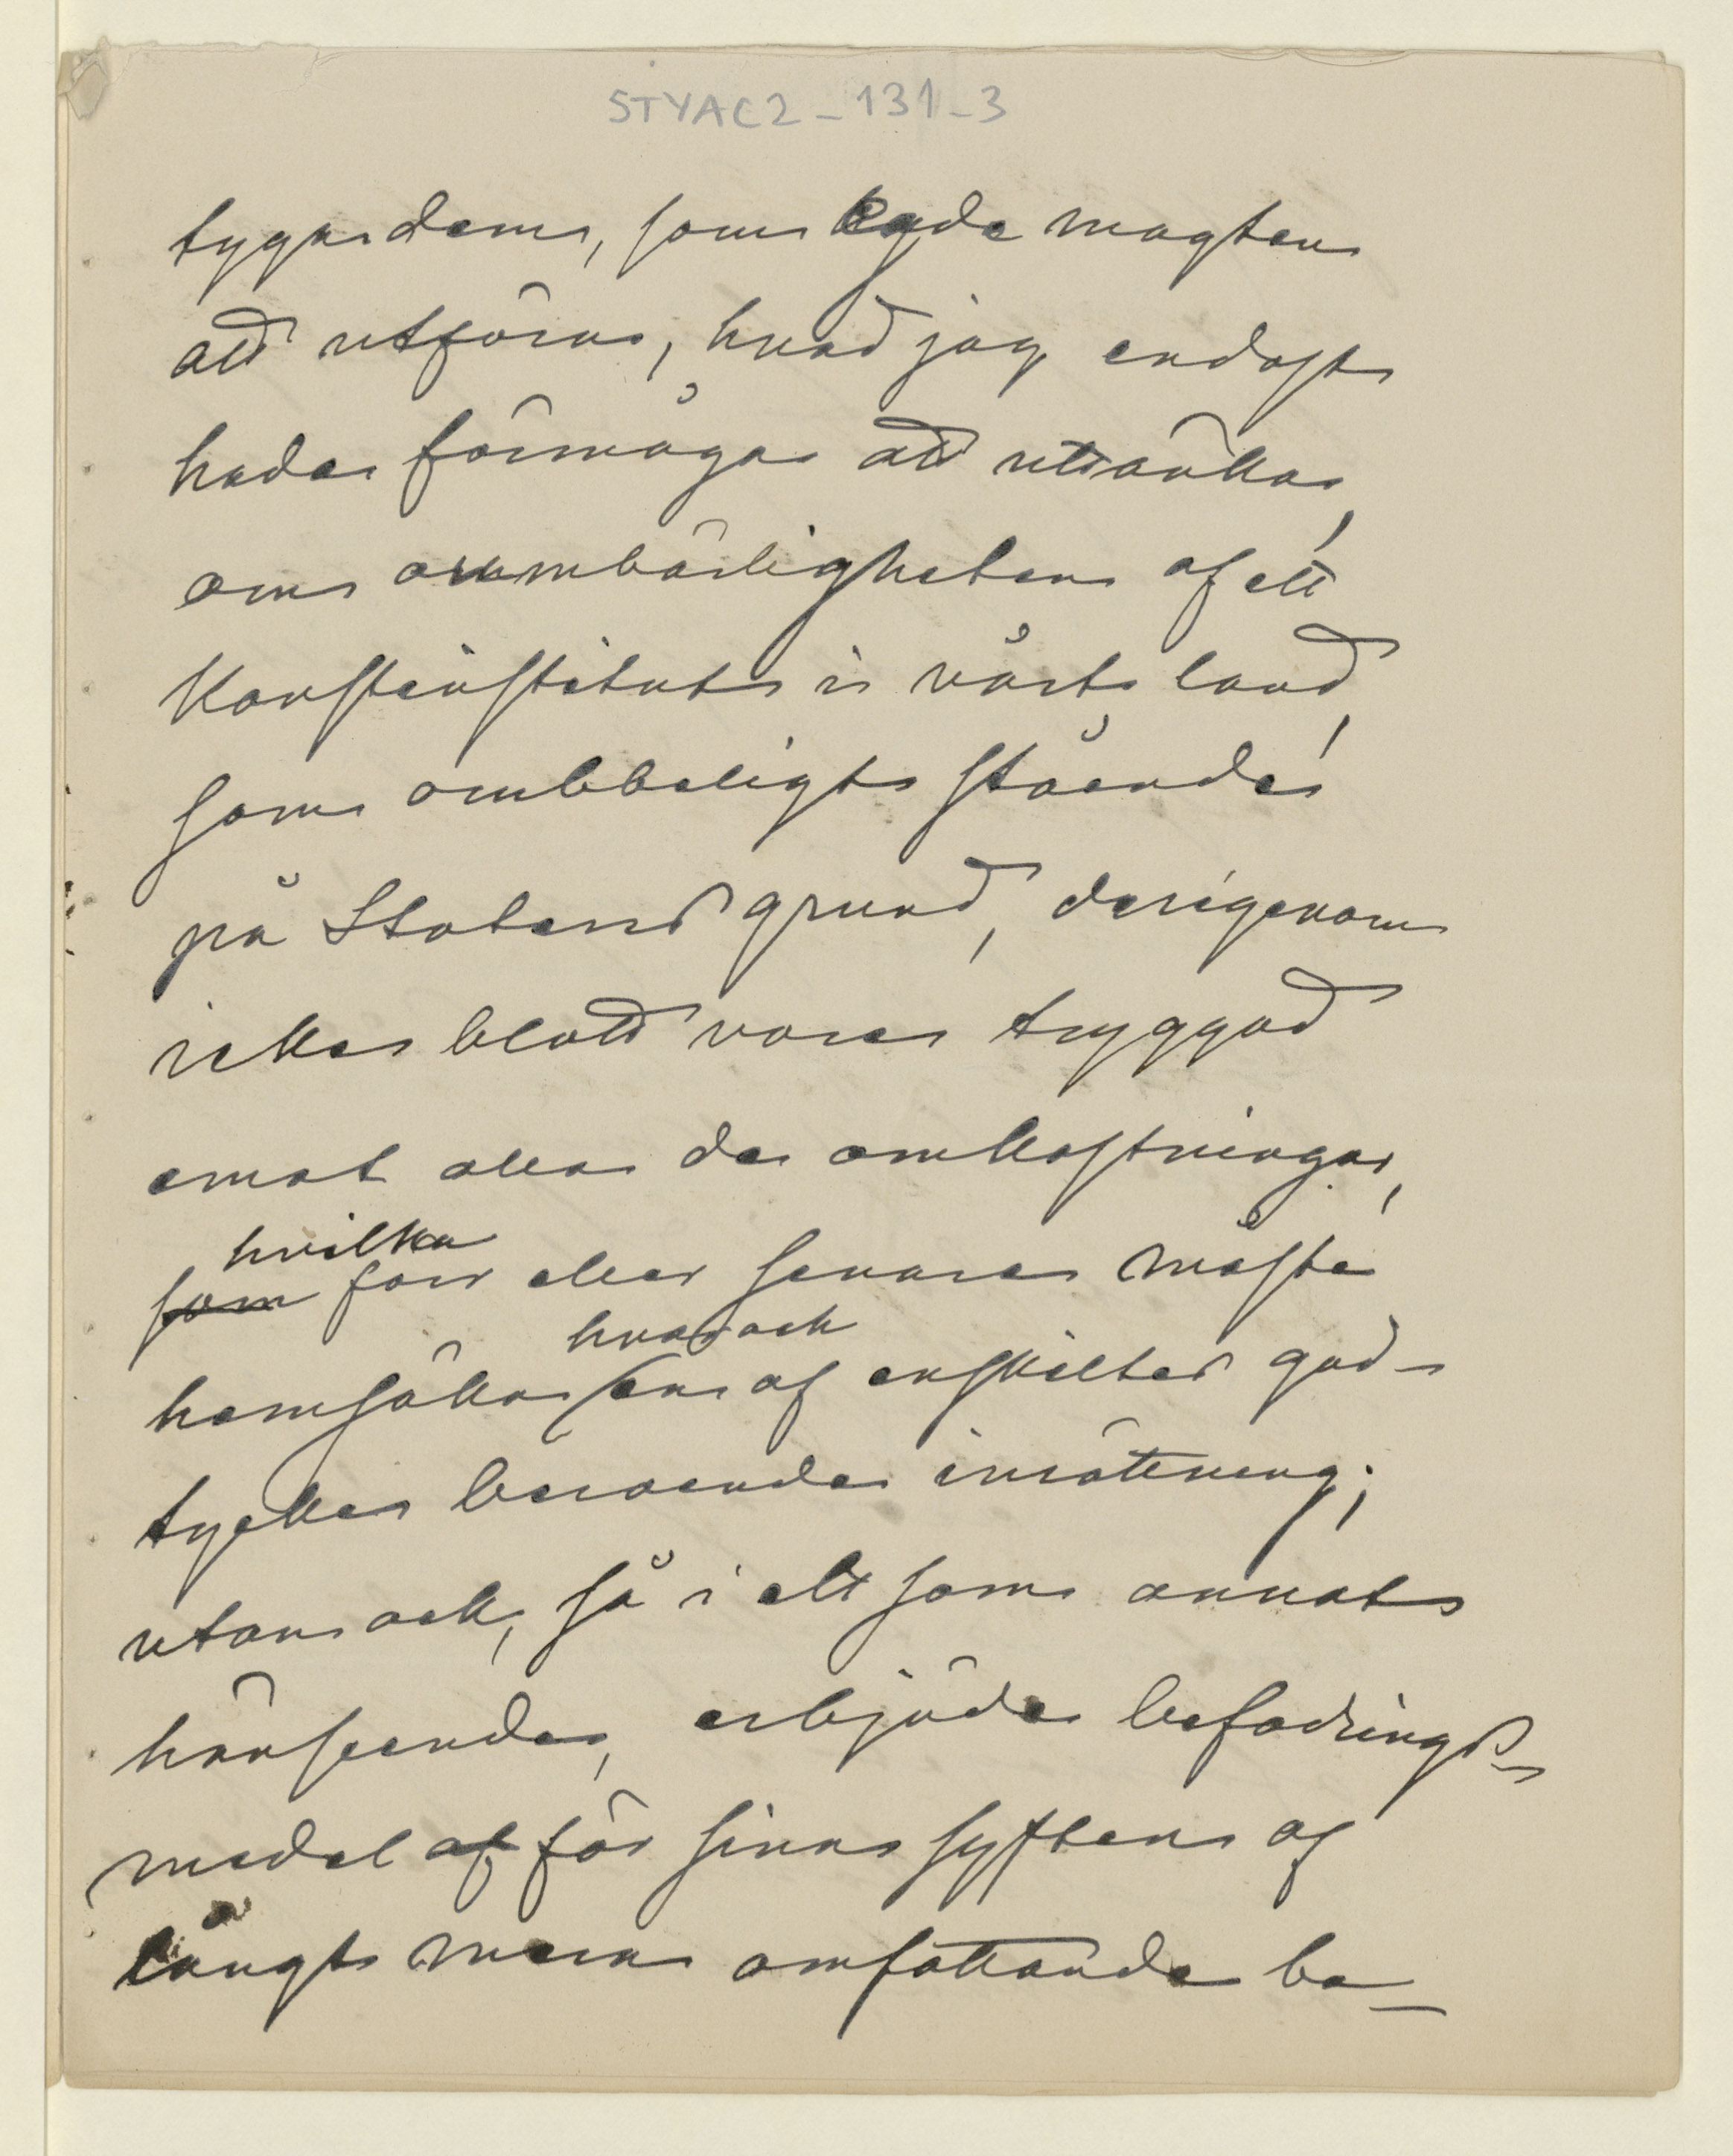 STYAC2_131_3
tyga dem, som egde magten
att utföra, hvad jag endast
hade förmåga att uttänka,
om oumbärligheten af ett
Konstinstitut i vårt land,
som ombkeligt stående
på Statens grund, derigenom
icke blott vore tryggad
emot alla de omkostningar,
hvilka
som förr eller senare måste
hvar och
hemsöka en af enskiltes god-
tycke beroende inrättning;
utan ock, så i ett som annat
hänseende, erbjöde befodrings-
medel af för sina syften af
långt mera omfattande be-